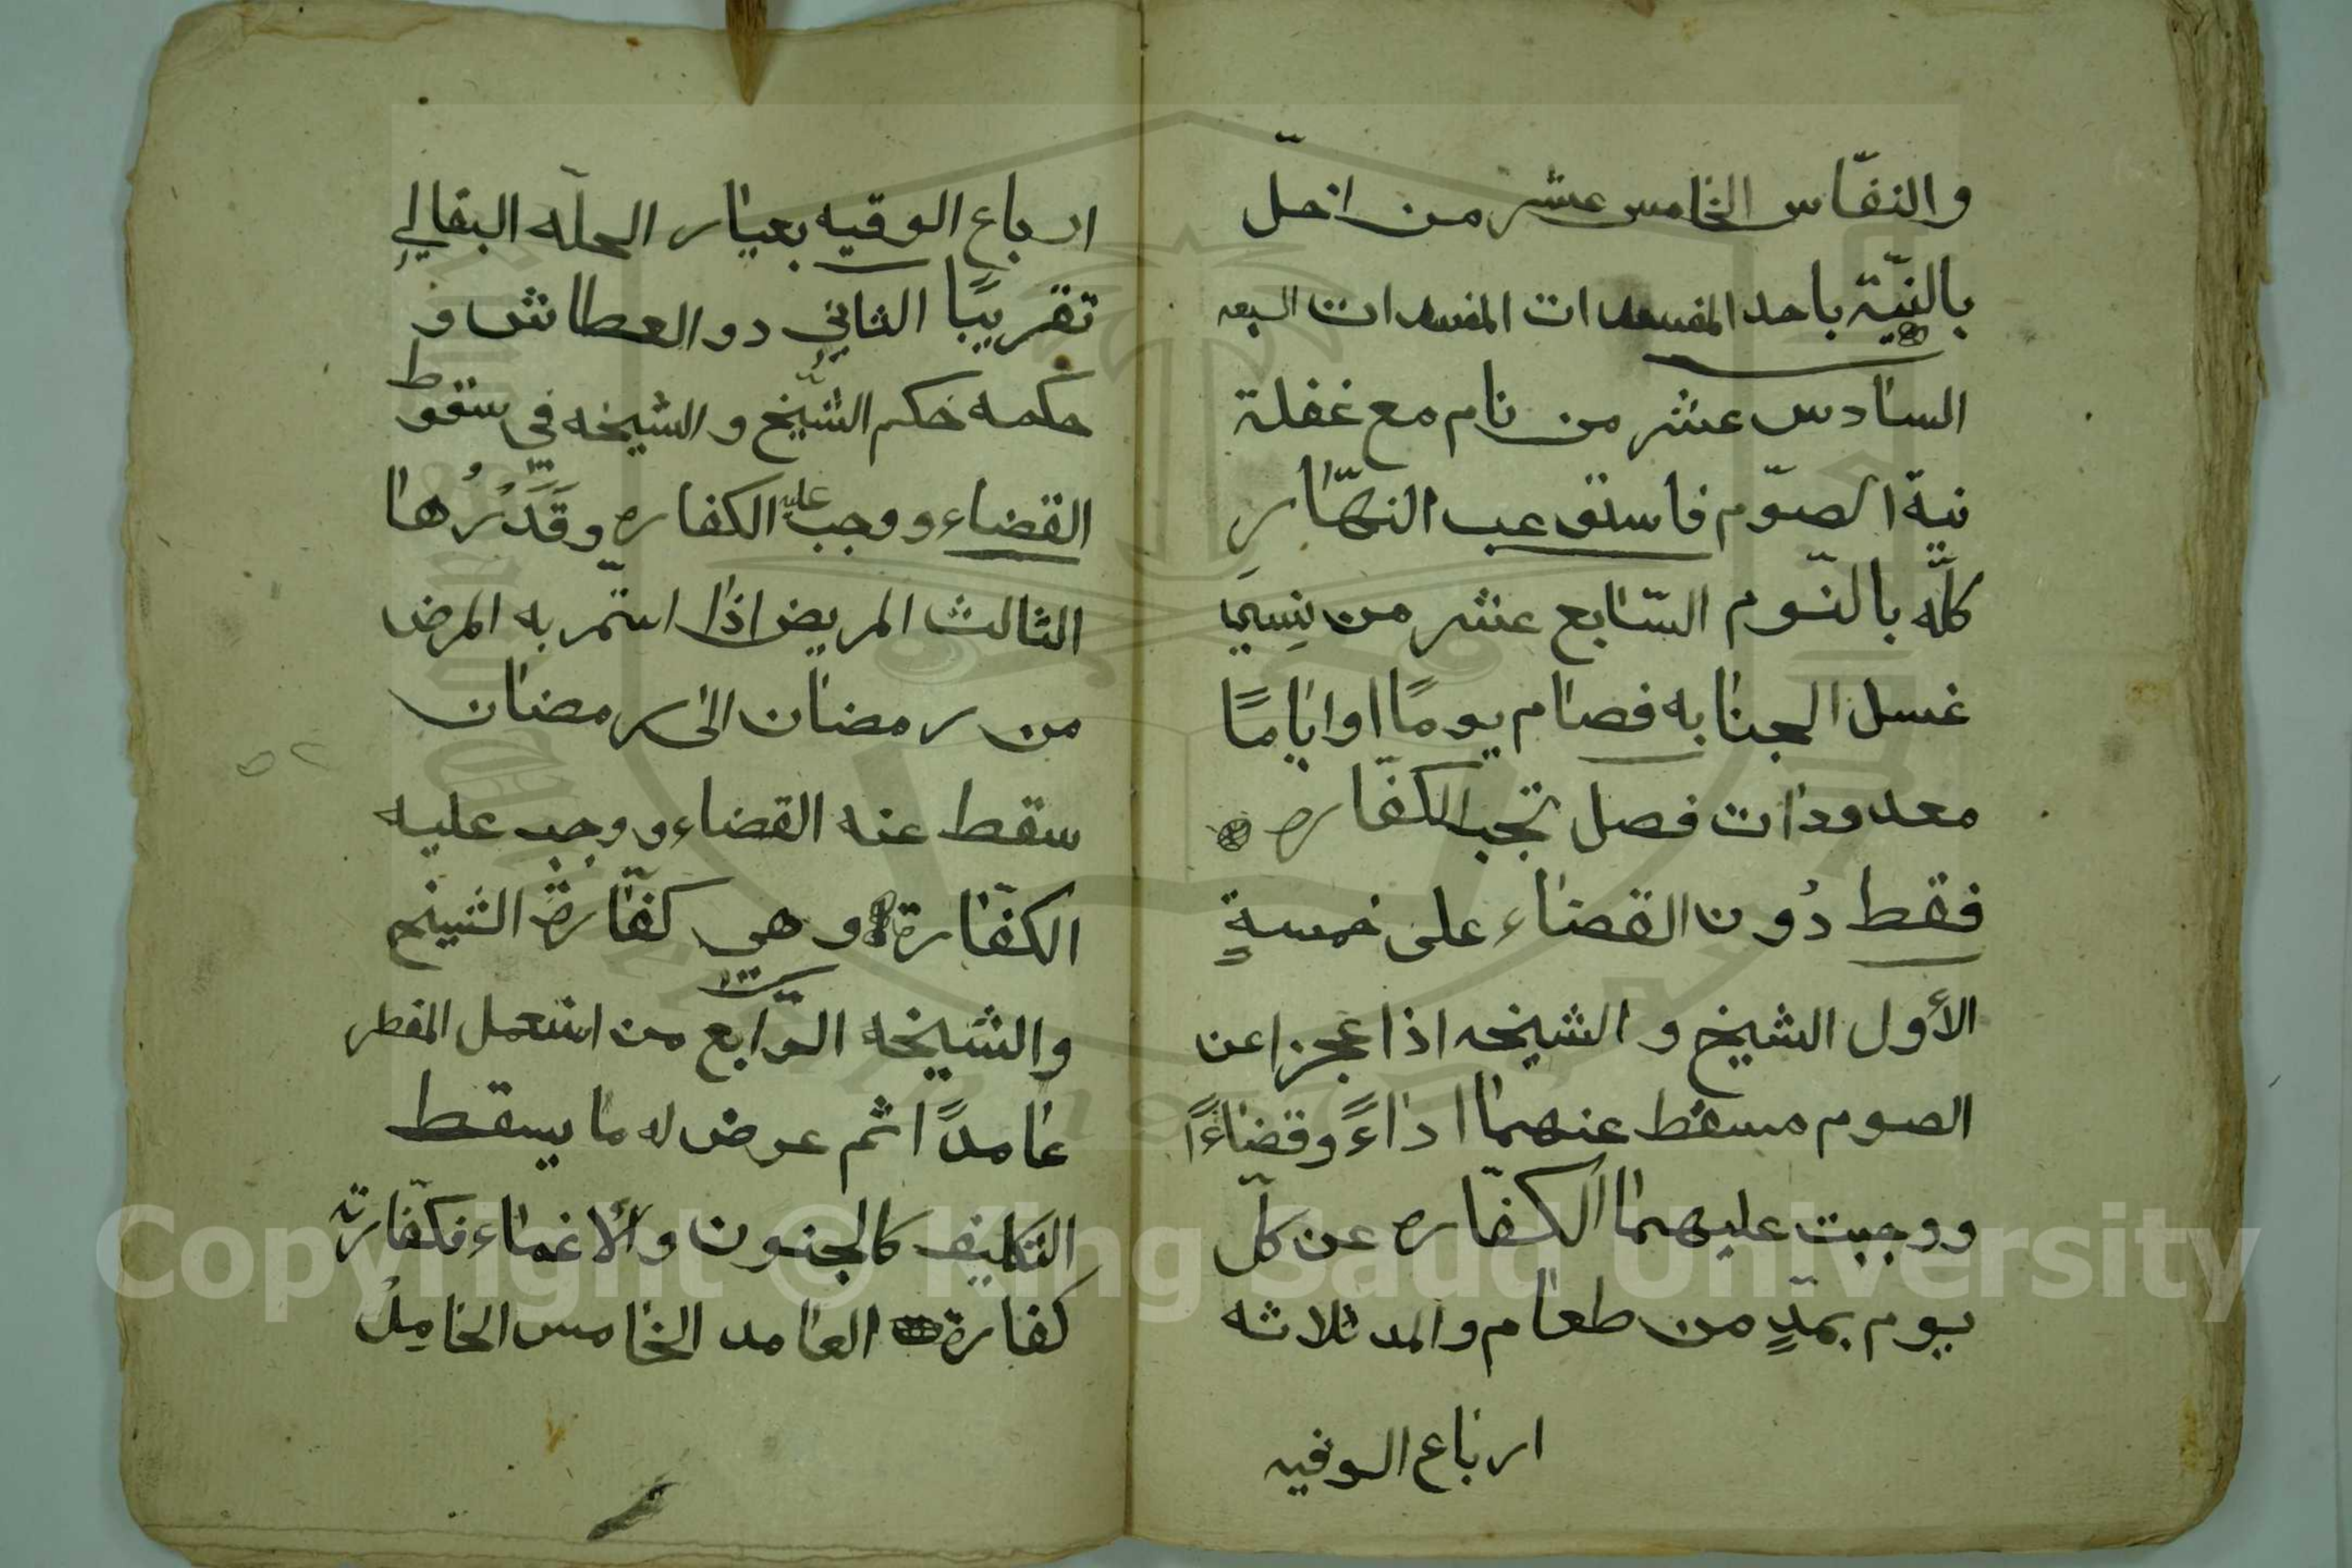 والنفّاس الخامس عشر من اخلّ
بالنيّة باحد المفسدات المفسدات السبعه
السادس عشر من نام مع غفلة
نية الصوّم فاستوعب النهّار
كلّه بالنّوم السّابع عشر من نسي
غسل الجنابه فصام يومًا او ايامًا
معدودات فصل تجب الكفّاره
فقط دُون القضاء على خمسةٍ
الأول الشيخ و الشيخه اذا عجزا عن
الصوم مسقط عنهما اداءً وقضاءًا
ووجبت عليهما الكفّاره عن كلّ
يوم بمدٍ من طعام والمد ثلاثه
ارباع الوقيه
ارباع الوقيه بعيار الحلّه البقالي
تقريبًا الثاني ذو العطاش و
حكمه حكم الشّيخ و الشيخه في سقوط
القضاء ووجب عليه الكفاره وقَدَرُها
الثالث المريض اذا استمّر به المرض
من رمضان الى رمضان
سقط عنه القضاء ووجب عليه
الكفّارة وهي كفّارة الشيخ
والشّيخه الرّابع من استعمل المفطر
عامدًا ثم عرض له ما يسقط
التكليف كالجنون والأغماء فكفّارته
كفارة العامد الخامس الحامِلْ
٥٢
Copyright © King Saud University